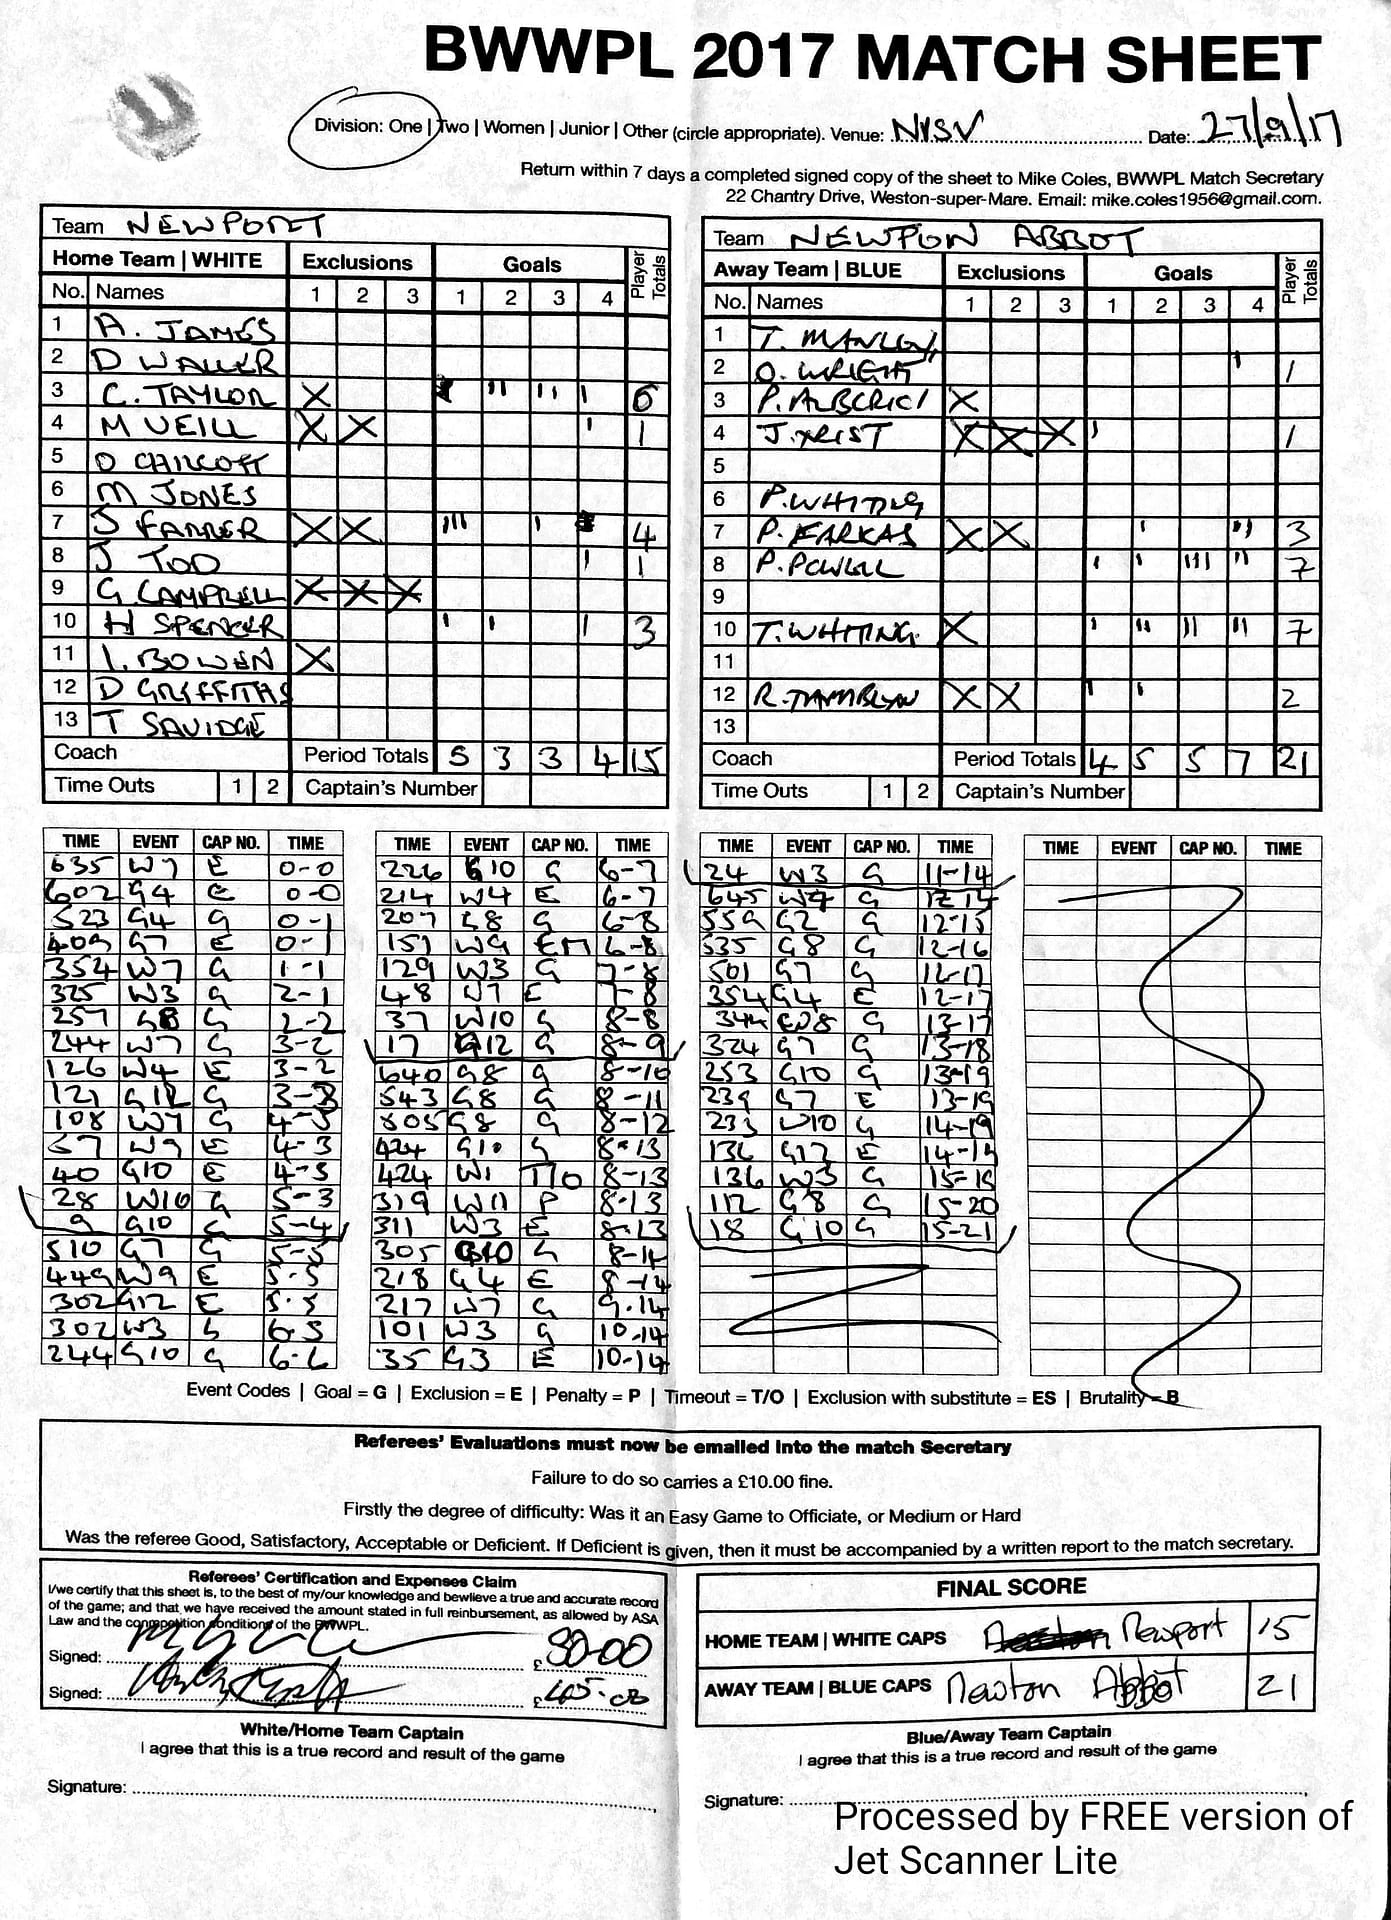 BWWPL 2017 MATCH SHEET
Division: One | Two | Women | Junior | Other (circle appropriate). Venue: NISV Date: 27/9/17
Return within 7 days a completed signed copy of the sheet to Mike Coles, BWWPL Match Secretary
22 Chantry Drive, Weston-super-Mare. Email: mike.coles1956@gmail.com.
Team NEWPORT
Home Team | WHITE Exclusions Goals Player Totals
No. Names 1 2 3 1 2 3 4
1 A. JAMES
2 D WALLER
3 C. TAYLOR X " " ı 6
4 M UEILL X X ı 1
5 D CHILCOTT
6 M JONES
7 S FARRER X X ııı ı 4
8 J TOD ı 1
9 G. CAMPBELL X X X
10 H SPENCER ı ı ı 3
11 I. BOWEN X
12 D GRIFFITHS
13 T SAVIDGE
Coach Period Totals 5 3 3 4 15
Time Outs 1 2 Captain's Number
Team NEWTON ABBOT
Away Team | BLUE Exclusions Goals Player Totals
No. Names 1 2 3 1 2 3 4
1 T. MANLEY
2 O. WRIGHT ı 1
3 P. ALBERICI X
4 J. KRIST X X X ı 1
5
6 P. WHITING
7 P. FARKAS X X ı ıı 3
8 P. POWELL ı ı ııı ıı 7
9
10 T. WHITING X ı ıı ıı ıı 7
11
12 R. TAMBLYN X X ı ı 2
13
Coach Period Totals 4 5 5 7 21
Time Outs 1 2 Captain's Number
TIME EVENT CAP NO. TIME
635 W7 E 0-0
602 G4 E 0-0
523 G4 G 0-1
409 G7 E 0-1
354 W7 G 1-1
325 W3 G 2-1
257 G8 G 2-2
244 W7 G 3-2
126 W4 E 3-2
121 G12 G 3-3
108 W7 G 4-3
57 W9 E 4-3
40 G10 E 4-3
28 W10 G 5-3
9 G10 G 5-4
510 G7 G 5-5
449 W9 E 5-5
302 G12 E 5-5
302 W3 G 6-5
244 G10 G 6-6
TIME EVENT CAP NO. TIME
226 G10 G 6-7
214 W4 E 6-7
207 G8 G 6-8
151 W9 EM 6-8
129 W3 G 7-8
48 W7 E 7-8
37 W10 G 8-8
17 G12 G 8-9
640 G8 G 8-10
543 G8 G 8-11
505 G8 G 8-12
424 G10 G 8-13
424 W1 T/O 8-13
319 W11 P 8-13
311 W3 E 8-13
305 G10 G 8-14
218 G4 E 8-14
217 W7 G 9-14
101 W3 G 10-14
35 G3 E 10-14
TIME EVENT CAP NO. TIME
24 W3 G 11-14
645 W4 G 12-14
559 G2 G 12-15
535 G8 G 12-16
501 G7 G 12-17
354 G4 E 12-17
344 W8 G 13-17
324 G7 G 13-18
253 G10 G 13-19
239 G7 E 13-19
233 W10 G 14-19
136 G12 E 14-19
136 W3 G 15-19
112 G8 G 15-20
18 G10 G 15-21
TIME EVENT CAP NO. TIME
Event Codes | Goal = G | Exclusion = E | Penalty = P | Timeout = T/O | Exclusion with substitute = ES | Brutality = B
Referees' Evaluations must now be emailed Into the match Secretary
Failure to do so carries a £10.00 fine.
Firstly the degree of difficulty: Was it an Easy Game to Officiate, or Medium or Hard
Was the referee Good, Satisfactory, Acceptable or Deficient. If Deficient is given, then it must be accompanied by a written report to the match secretary.
Referees' Certification and Expenses Claim
I/we certify that this sheet is, to the best of my/our knowledge and bewlieve a true and accurate record
of the game; and that we have received the amount stated in full reinbursement, as allowed by ASA
Law and the conmpetition conditions of the BWWPL.
Signed: £ 80-00
Signed: £
FINAL SCORE
HOME TEAM | WHITE CAPS Newport 15
AWAY TEAM | BLUE CAPS Newton Abbot 21
White/Home Team Captain
I agree that this is a true record and result of the game
Signature:
Blue/Away Team Captain
I agree that this is a true record and result of the game
Signature:
Processed by FREE version of
Jet Scanner Lite